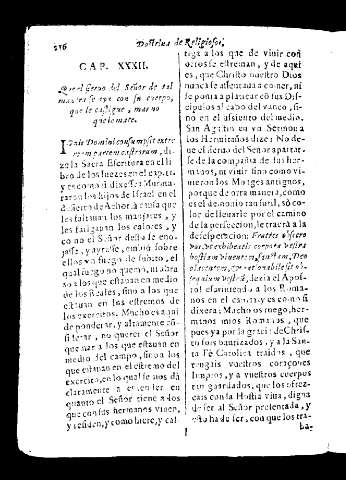 216 Doctrina de Religiosos,
CAP. XXXII.
Que el Siervo del Señor de tal
manera ha de ser con su cuerpo,
que le castigue, mas no
que le mate.
IGnis Domini consumpsit extre
mam partem castrorum, di-
ze la Sacra Escritura en el li
bro de los
y es como si dixesse: Murmu-
raron los hijos de Israel en el
desierto de à causa que
les faltauan los manjares, y
les fatigauan los calores, y
como el Señor desto se eno-
jasse, y ayrasse, embiò sobre
ellos vn fuego de subito, el
qual fuego no quemò, ni abra
sò a los que estauan en medio
de los Reales, sino a los que
estauan en los estremos de
los exercitos. Mucho es aqui
de ponderar, y altamente cõ-
siderar, no querer el Señor
quemar a los que estauan en
medio del campo, sino a los
que estauan en el estremo del
exercito, en lo qual se nos dà
claramente a entender en
quanto el Señor tiene a los
que con sus hermanos viuen,
y residen, y como hiere, y cas
tiga a los que de viuir con
otros se estreman, y de aqui
es, que Christo nuestro Dios
nunca se assentaua a comer, ni
se ponia a platicar cõ sus Dis-
cipulos al cabo del vanco, si-
no en el assiento del medio.
San Agustin en vn Sermon a
los Hermitaños dize: No de-
ue el sieruo del Señor apartar-
se de la compañia de sus her-
manos, ni viuir sino como vi-
uieron los Monges antiguos,
porque de otra manera, como
es el demonio tan sutil, sò co-
lor de lleuarle por el camino
de la perfeccion, le traerà a la
desesperacion: Fratres obsecro
vos, vt exhibeatis corpora vestra
hostiam viuentem, sanctam, Deo
placentem, & rationabile sit ob-
sequium vestrum, dezia el Apos-
tol escriuiendo a los Roma-
nos en el cap. y es como si
dixera: Mucho os ruego, her-
manos mios Romanos, que
pues ya por la gracia de Chris-
to sois bautizados, y a la San-
ta Fè Catolica traidos, que
tengais vuestros coraçones
limpios, y a vuestros cuerpos
tan guardados, que los ofrez-
cais con la Hostia viua, digna
de ser al Señor presentada, y
esto ha de ser, con que los tra-
ba-